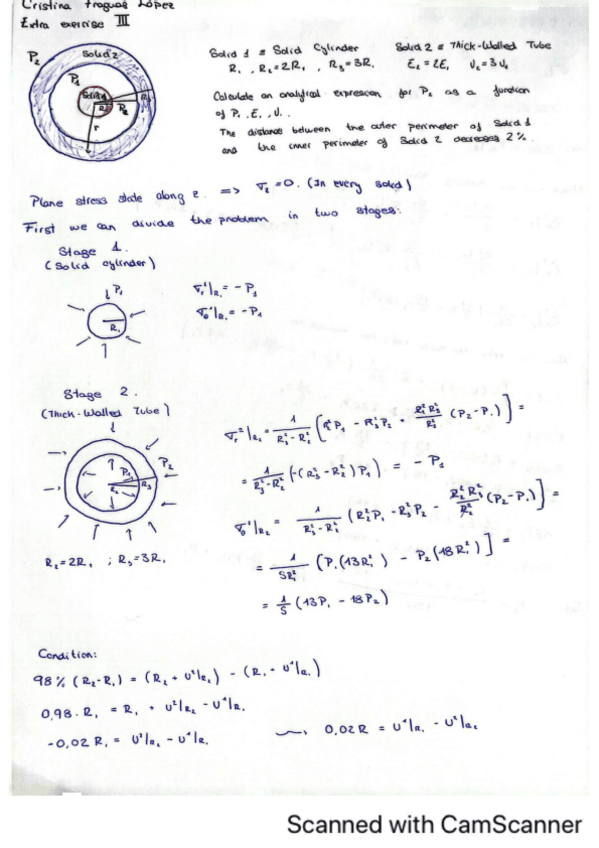 Cristina Fraguas López
Extra exercise III
Solid 1 ≡ Solid Cylinder Solid 2 ≡ Thick-Walled Tube
R₁, R₂=2R₁, R₃=3R₁ E₂=2E₁ ν₂=3ν₁
Calculate an analytical expression for P₂ as a function
of P₁, E₁, ν₁.
The distance between the outer perimeter of Solid 1
and the inner perimeter of Solid 2 decreases 2%.
P₂
Solid 2
P₁
Solid 1
R₃
R₂
r
Plane stress state along z. => σz=0. (In every solid)
First we can divide the problem in two stages:
Stage 1.
(Solid cylinder)
P₁
R₁
σr¹|R₁ = -P₁
σθ¹|R₁ = -P₁
Stage 2.
(Thick-Walled Tube)
P₂
P₁
R₃
R₂
R₂=2R₁ ; R₃=3R₁
σr²|R₂ = 1/(R₃²-R₂²) [R₂²P₁ - R₃²P₂ + R₂²R₃²/R₂² (P₂-P₁)] =
= 1/(R₃²-R₂²) (-(R₃²-R₂²)P₁) = -P₁
σθ²|R₂ = 1/(R₃²-R₂²) (R₂²P₁ - R₃²P₂ - R₂²R₃²/R₂² (P₂-P₁)] =
= 1/5R₁² (P₁(13R₁²) - P₂(18R₁²)] =
= 1/5 (13P₁ - 18P₂)
Condition:
98% (R₂-R₁) = (R₂ + U²|R₂) - (R₁ + U¹|R₁)
0,98·R₁ = R₁ + U²|R₂ - U¹|R₁
-0,02R₁ = U²|R₂ - U¹|R₁ 0,02R = U¹|R₁ - U²|R₂
Scanned with CamScanner